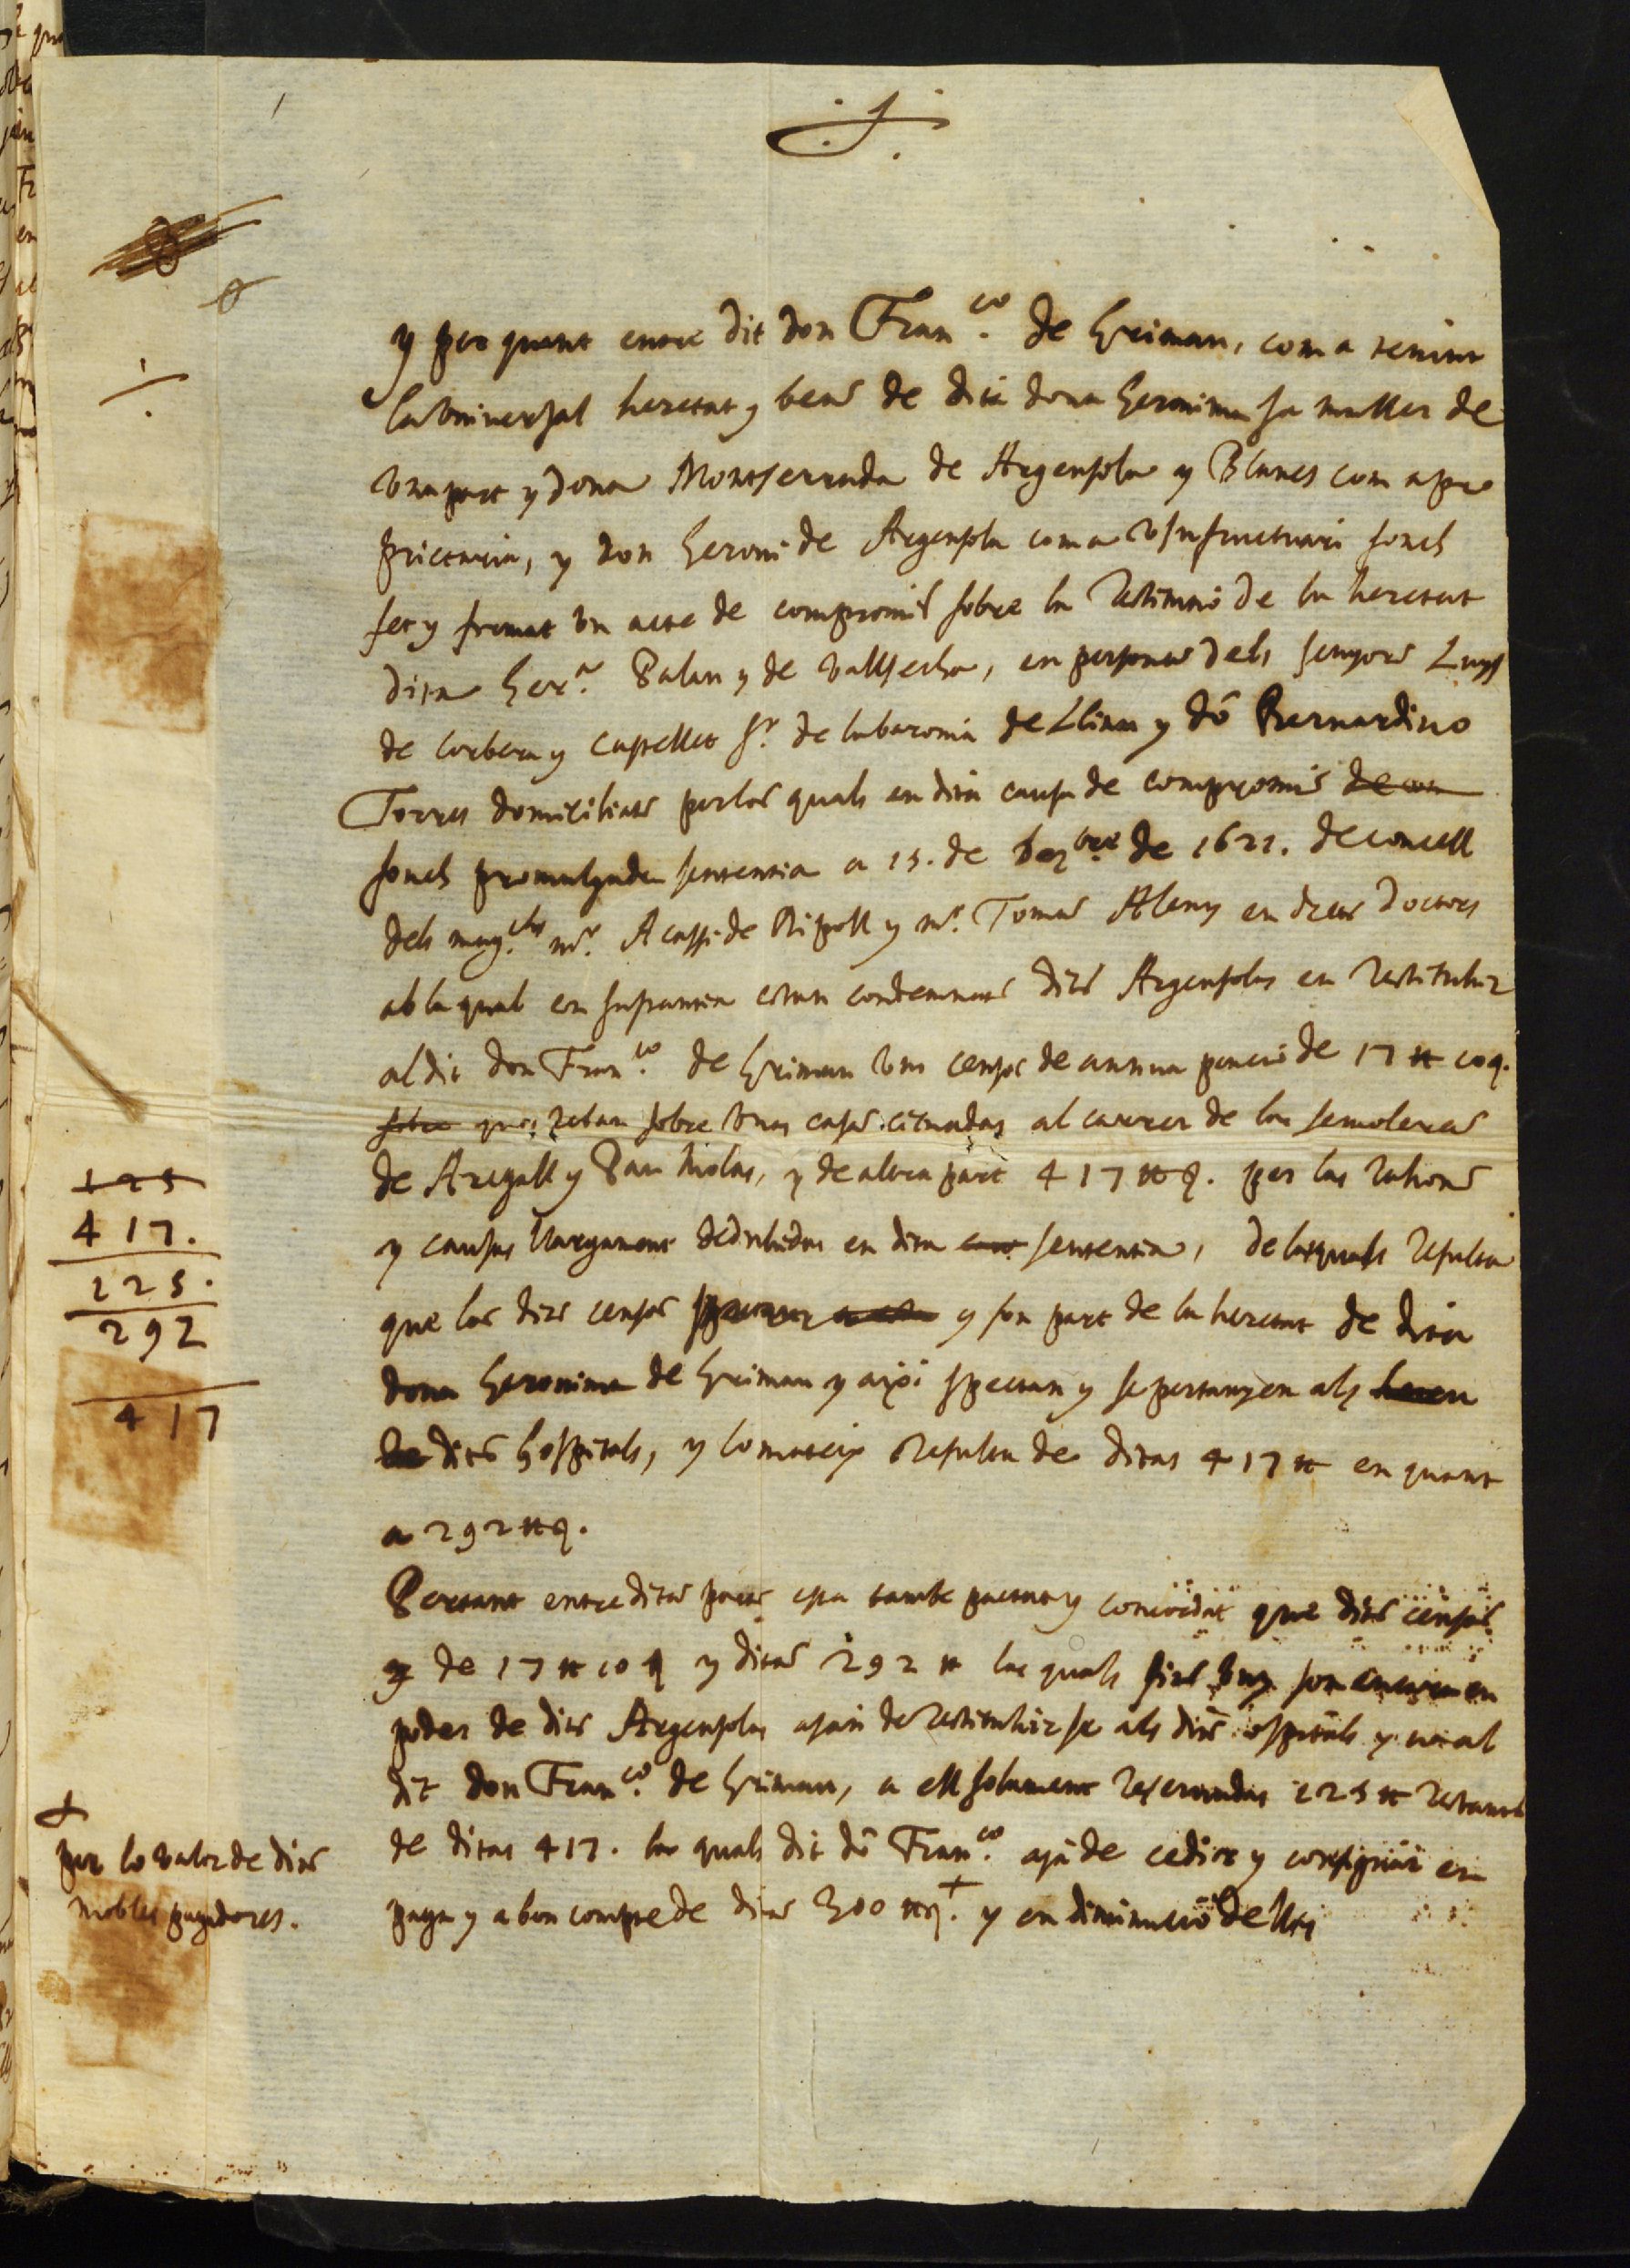 y per quant entre dit don Fran.co de Grimau, com a tenint
la universal heretat y bens de dita dona Geronima sa muller de
una part y dona Montserrada de Argensola y Blanes com a pro
prietaria, y don Geroni de Argensola com a usufructuari fonch
fet y fermat un acte de compromis sobre la restitutio de la heretat
dita Her.a Palau y de Vallsecha, en personas dels senyors Luys
de Corbera y Castellet S.r de la baronia de Llinas y dõ Bernardino
Torres domiciliats per los quals en dita causa de compromis de con
fonch promulgada sententia a 15. de de 1621. de concell
dels mag.chs m.r Acassi de Ripoll y m.r Tomas Aleny en drets doctors
ab la qual en sustantia estan condemnats dits Argensolas en restituhir
al dit don Fran.co de Grimau uns censos de annua pencio de 17 ₶ 10 s.
sobre ques reban sobre unas casas cituadas al carrer de las semoleras
de Aregall y Pau Nicolas, y de altra part 417 ₶ s. per las rahons
y causas llargament deduhidas en dita sententia, de las quals resulta
que los dits censos y son part de la heretat de dita
dona Geronima de Grimau y axi spectan y se pertanyen als hereu
de dits hospitals, y lo mateix resulta de ditas 417 ₶ en quant
a 292 ₶ s.
Pertant entre ditas parts esta tambe pactat y concordat que dits censos
y de 17 ₶ 10 s y ditas 292 ₶ las quals fins vuy son encara en
poder de dits Argensolas ajan de restituhirse als dits ospitals y no al
dit don Fran.co de Grimau, a ell solament reservadas 125 ₶ restants
de ditas 417. las quals dit dõ Fran.co aja de cedir y consignar en
paga y a bon compte de ditas 300 ₶ s. + y en diminucio de llas
+
per lo valor de dits
mobles pagadores.
125
417.
125.
292
417